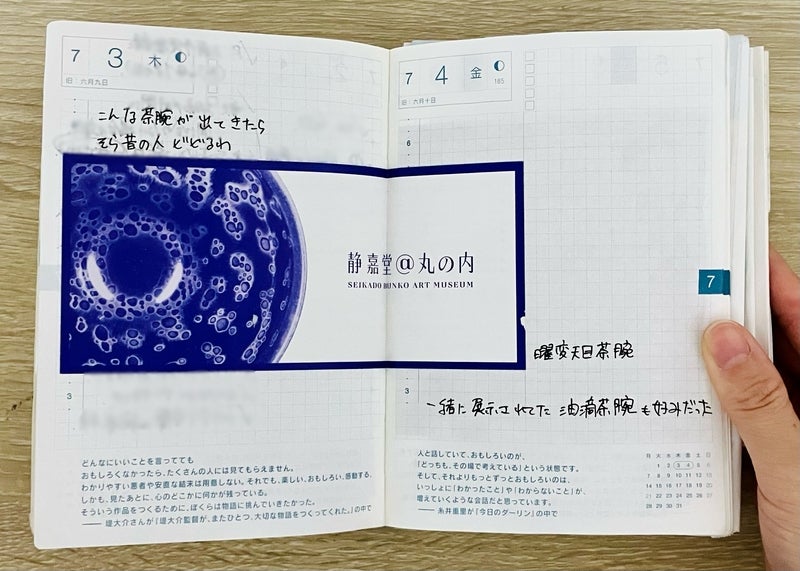 7 3 木
旧 六月九日
こんな茶腕が出てきたら
そら昔の人どどるわ
3
どんなにいいことを言ってても
おもしろくなかったら、たくさんの人には見てもらえません。
わかりやすい悪者や安直な結末は用意しない。それでも、楽しい、おもしろい、感動する。
しかも、見たあとに、心のどこかに何かが残っている。
そういう作品をつくるために、ぼくらは物語に挑んでいきたかった。
── 堤大介さんが『堤大介監督が、またひとつ、大切な物語をつくってくれた。』の中で
静嘉堂@丸の内
SEIKADO BUNKO ART MUSEUM
7 4 金
185
旧 六月十日
6
7
曜変天目茶腕
3
一緒に展示されてた 油滴茶腕も好みだった
人と話していて、おもしろいのが、
「どっちも、その場で考えている」という状態です。
そして、それよりもっとずっとおもしろいのは、
いっしょに「わかったこと」や「わからないこと」が、
増えていくような会話だと思っています。
── 糸井重里が『今日のダーリン』の中で
月 火 水 木 金 土 日
1 2 3 4 5 6
7 8 9 10 11 12 13
14 15 16 17 18 19 20
21 22 23 24 25 26 27
28 29 30 31